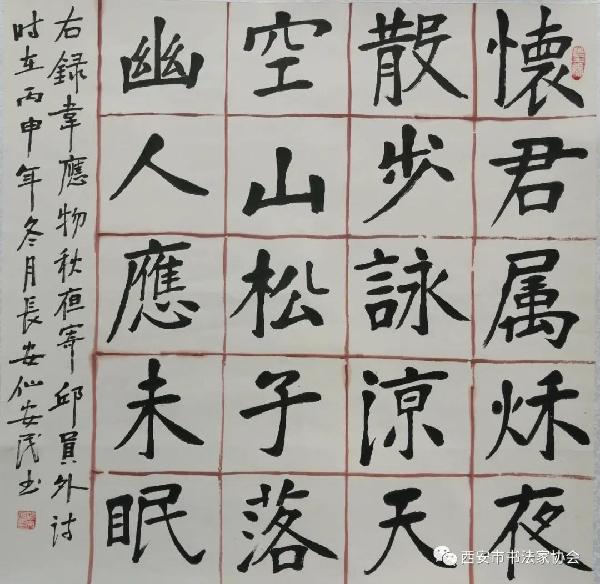 懷君属秌夜
散步詠涼天
空山松子落
幽人應未眠
右録韋應物秋夜寄邱員外诗
时在丙申年冬月長安仙安民书
西安市书法家协会